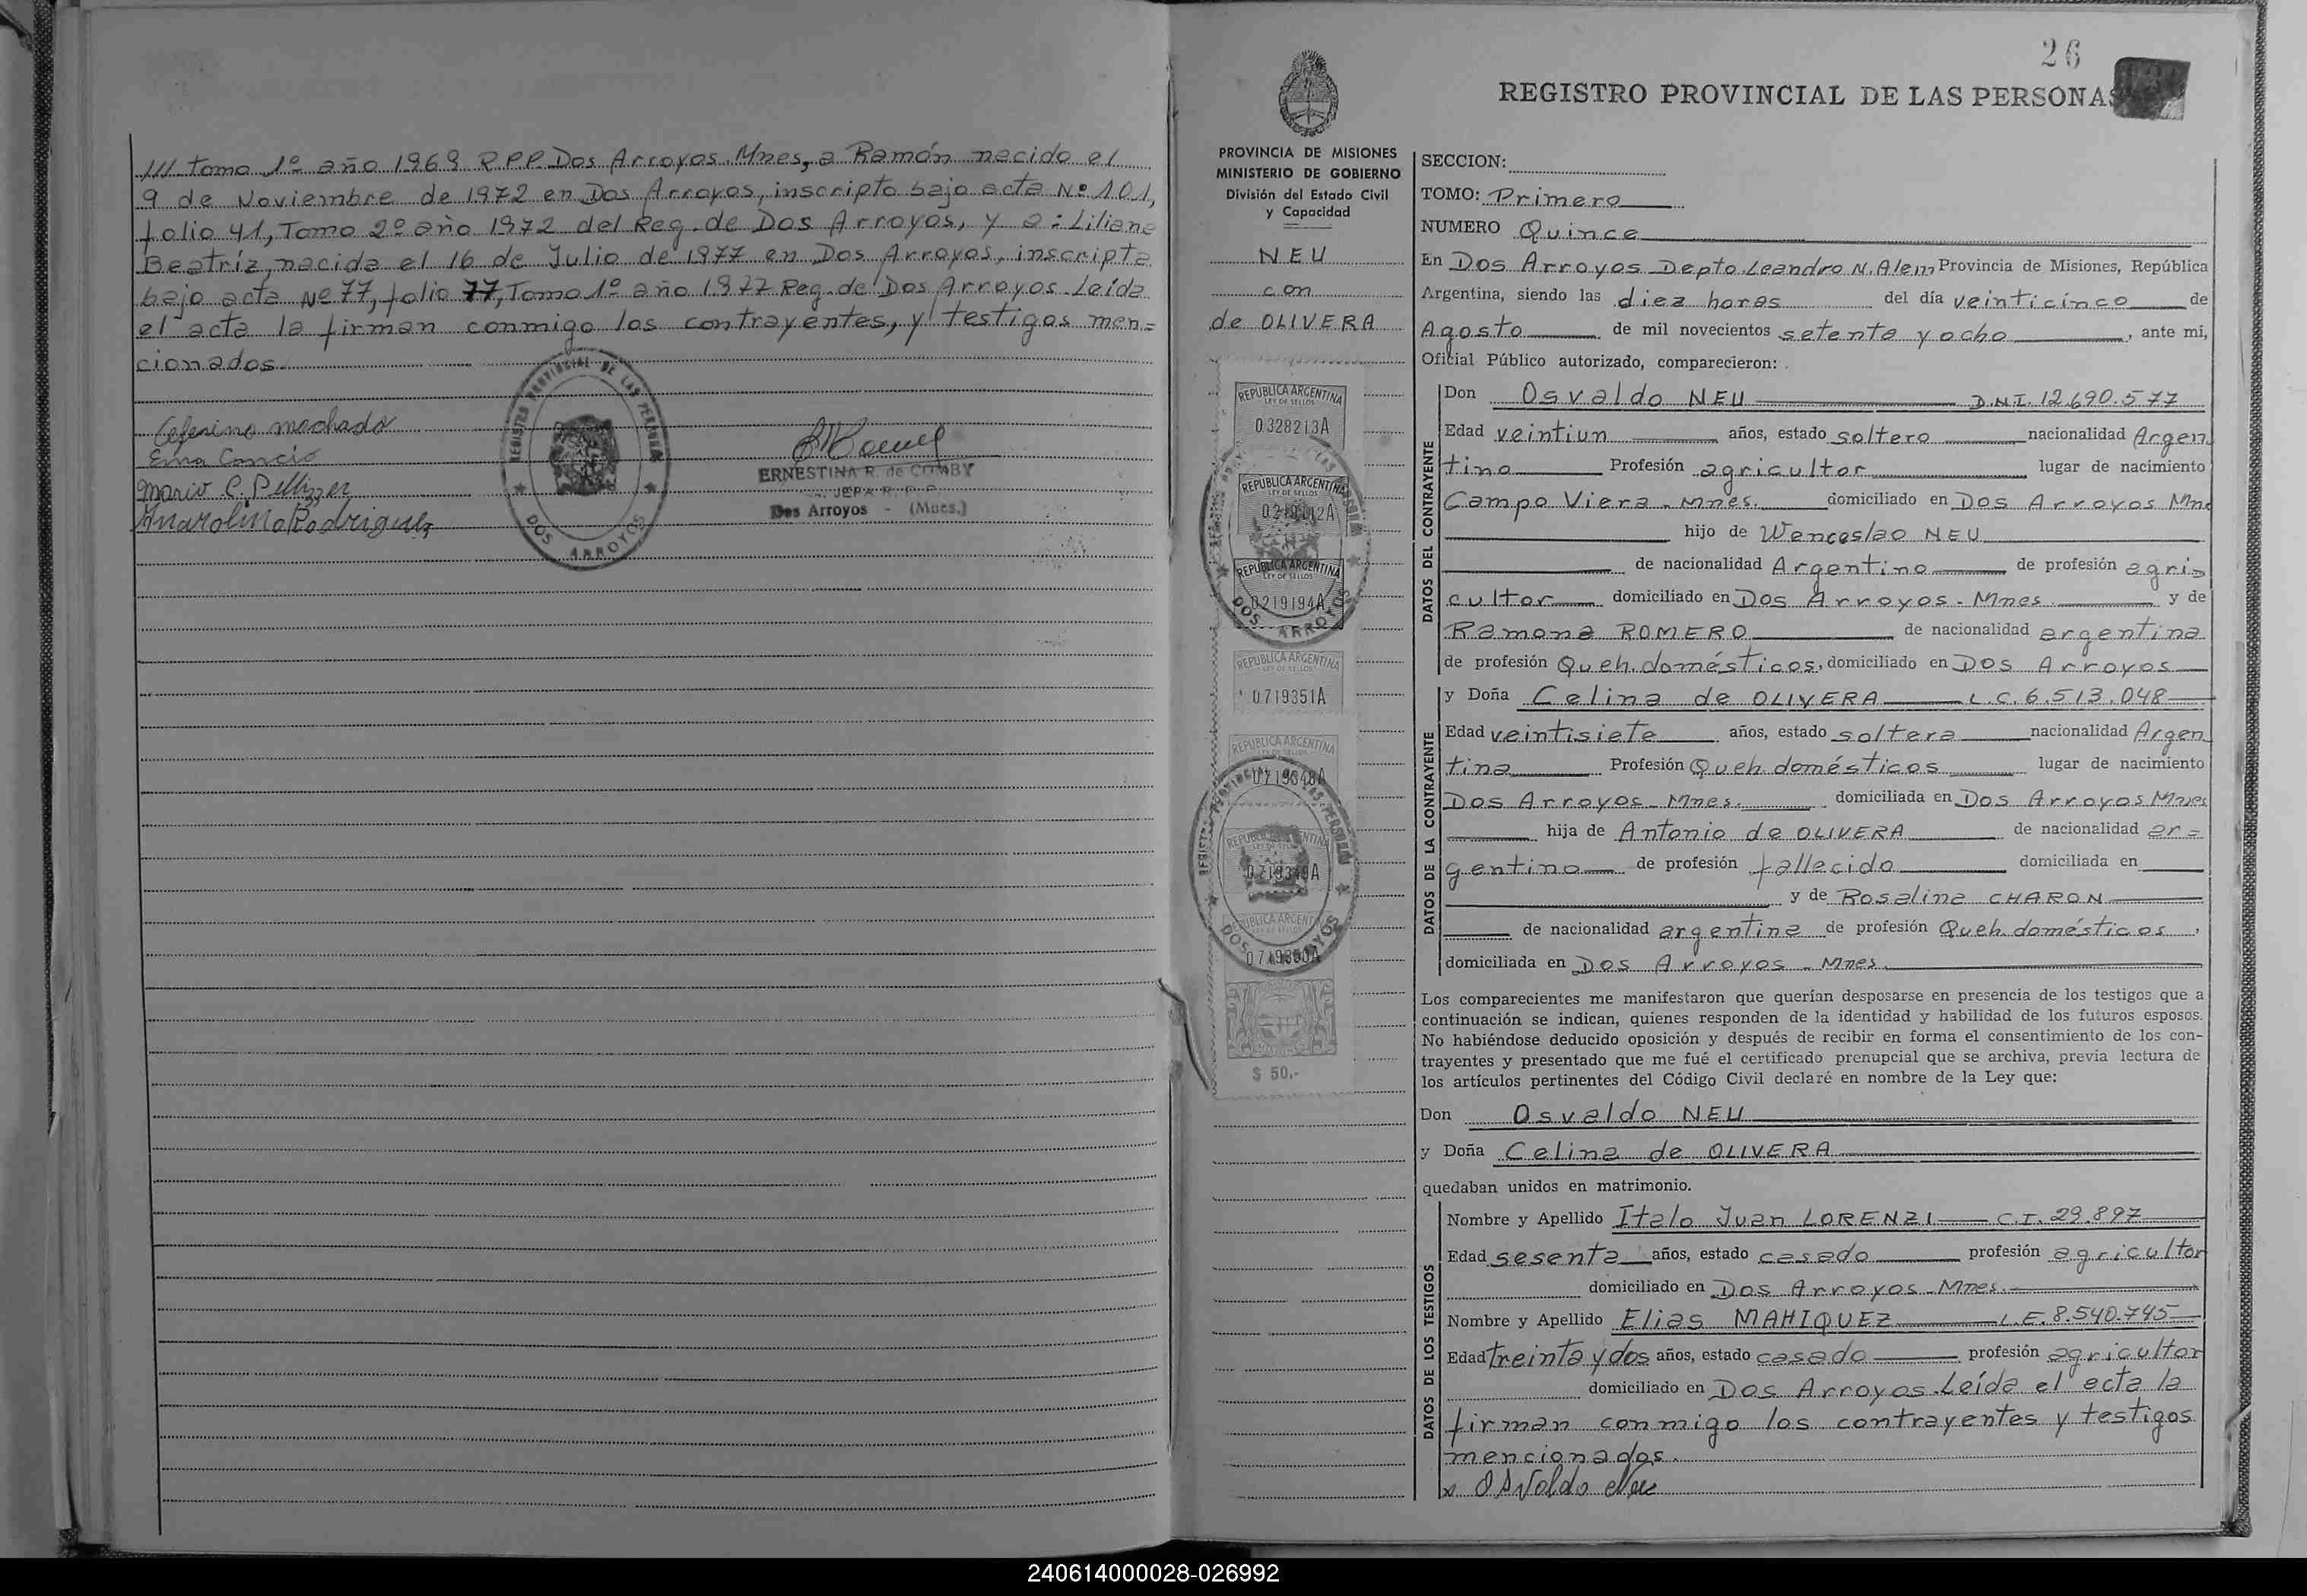 /// Tomo 1º año 1969 R.P.P. Dos Arroyos. Mnes, a Ramón nacido el
9 de Noviembre de 1972 en Dos Arroyos, inscripto bajo acta Nº 101,
folio 41, Tomo 2º año 1972 del Reg. de Dos Arroyos, y a: Liliana
Beatríz, nacida el 16 de Julio de 1977 en Dos Arroyos, inscripta
bajo acta Nº 77, folio 77, Tomo 1º año 1977 Reg. de Dos Arroyos. Leída
el acta la firman conmigo los contrayentes, y testigos men=
cionados.
REGISTRO PROVINCIAL DE LAS PERSONAS
DOS ARROYOS
Ceferino machado
Ema Concio
Mario C. Pellizzer
Rodriguez
ERNESTINA R. de COMBY
JEFA R. P. P.
Dos Arroyos - (Mnes.)
26
REGISTRO PROVINCIAL DE LAS PERSONAS
PROVINCIA DE MISIONES
MINISTERIO DE GOBIERNO
División del Estado Civil
y Capacidad
NEU
con
de OLIVERA
REPUBLICA ARGENTINA
LEY DE SELLOS
0328213A
REPUBLICA ARGENTINA
LEY DE SELLOS
REPUBLICA ARGENTINA
LEY DE SELLOS
0219194A
DOS ARROYOS
REPUBLICA ARGENTINA
LEY DE SELLOS
0719351A
REPUBLICA ARGENTINA
0719348A
REPUBLICA ARGENTINA
0719349A
REPUBLICA ARGENTINA
DOS ARROYOS
0719350A
$ 50.-
SECCION:
TOMO: Primero
NUMERO Quince
En Dos Arroyos Depto. Leandro N. Alem Provincia de Misiones, República
Argentina, siendo las diez horas del día veinticinco de
Agosto de mil novecientos setenta y ocho, ante mi,
Oficial Público autorizado, comparecieron:
DATOS DEL CONTRAYENTE
Don Osvaldo NEU D.N.I. 12.690.577
Edad veintiun años, estado soltero nacionalidad Argen
tino Profesión agricultor lugar de nacimiento
Campo Viera - Mnes. domiciliado en Dos Arroyos Mne
hijo de Wenceslao NEU
de nacionalidad Argentino de profesión agri=
cultor domiciliado en Dos Arroyos - Mnes. y de
Ramona ROMERO de nacionalidad argentina
de profesión Queh. domésticos, domiciliado en Dos Arroyos
DATOS DE LA CONTRAYENTE
y Doña Celina de OLIVERA L.C. 6.513.048
Edad veintisiete años, estado soltera nacionalidad Argen
tina Profesión Queh domésticos lugar de nacimiento
Dos Arroyos - Mnes. domiciliada en Dos Arroyos Mnes
hija de Antonio de OLIVERA de nacionalidad ar=
gentino de profesión fallecido domiciliada en
y de Rosalina CHARON
de nacionalidad argentina de profesión Queh. domésticos,
domiciliada en Dos Arroyos - Mnes.
Los comparecientes me manifestaron que querían desposarse en presencia de los testigos que a
continuación se indican, quienes responden de la identidad y habilidad de los futuros esposos.
No habiéndose deducido oposición y después de recibir en forma el consentimiento de los con-
trayentes y presentado que me fué el certificado prenupcial que se archiva, previa lectura de
los artículos pertinentes del Código Civil declaré en nombre de la Ley que:
Don Osvaldo NEU
y Doña Celina de OLIVERA
quedaban unidos en matrimonio.
DATOS DE LOS TESTIGOS
Nombre y Apellido Italo Juan LORENZI C.I. 29.897
Edad sesenta años, estado casado profesión agricultor
domiciliado en Dos Arroyos - Mnes.
Nombre y Apellido Elias MAHIQUEZ L.E. 8.540.745
Edad treinta y dos años, estado casado profesión agricultor
domiciliado en Dos Arroyos. Leída el acta la
firman conmigo los contrayentes y testigos
mencionados.
x Osvaldo Neu
240614000028-026992